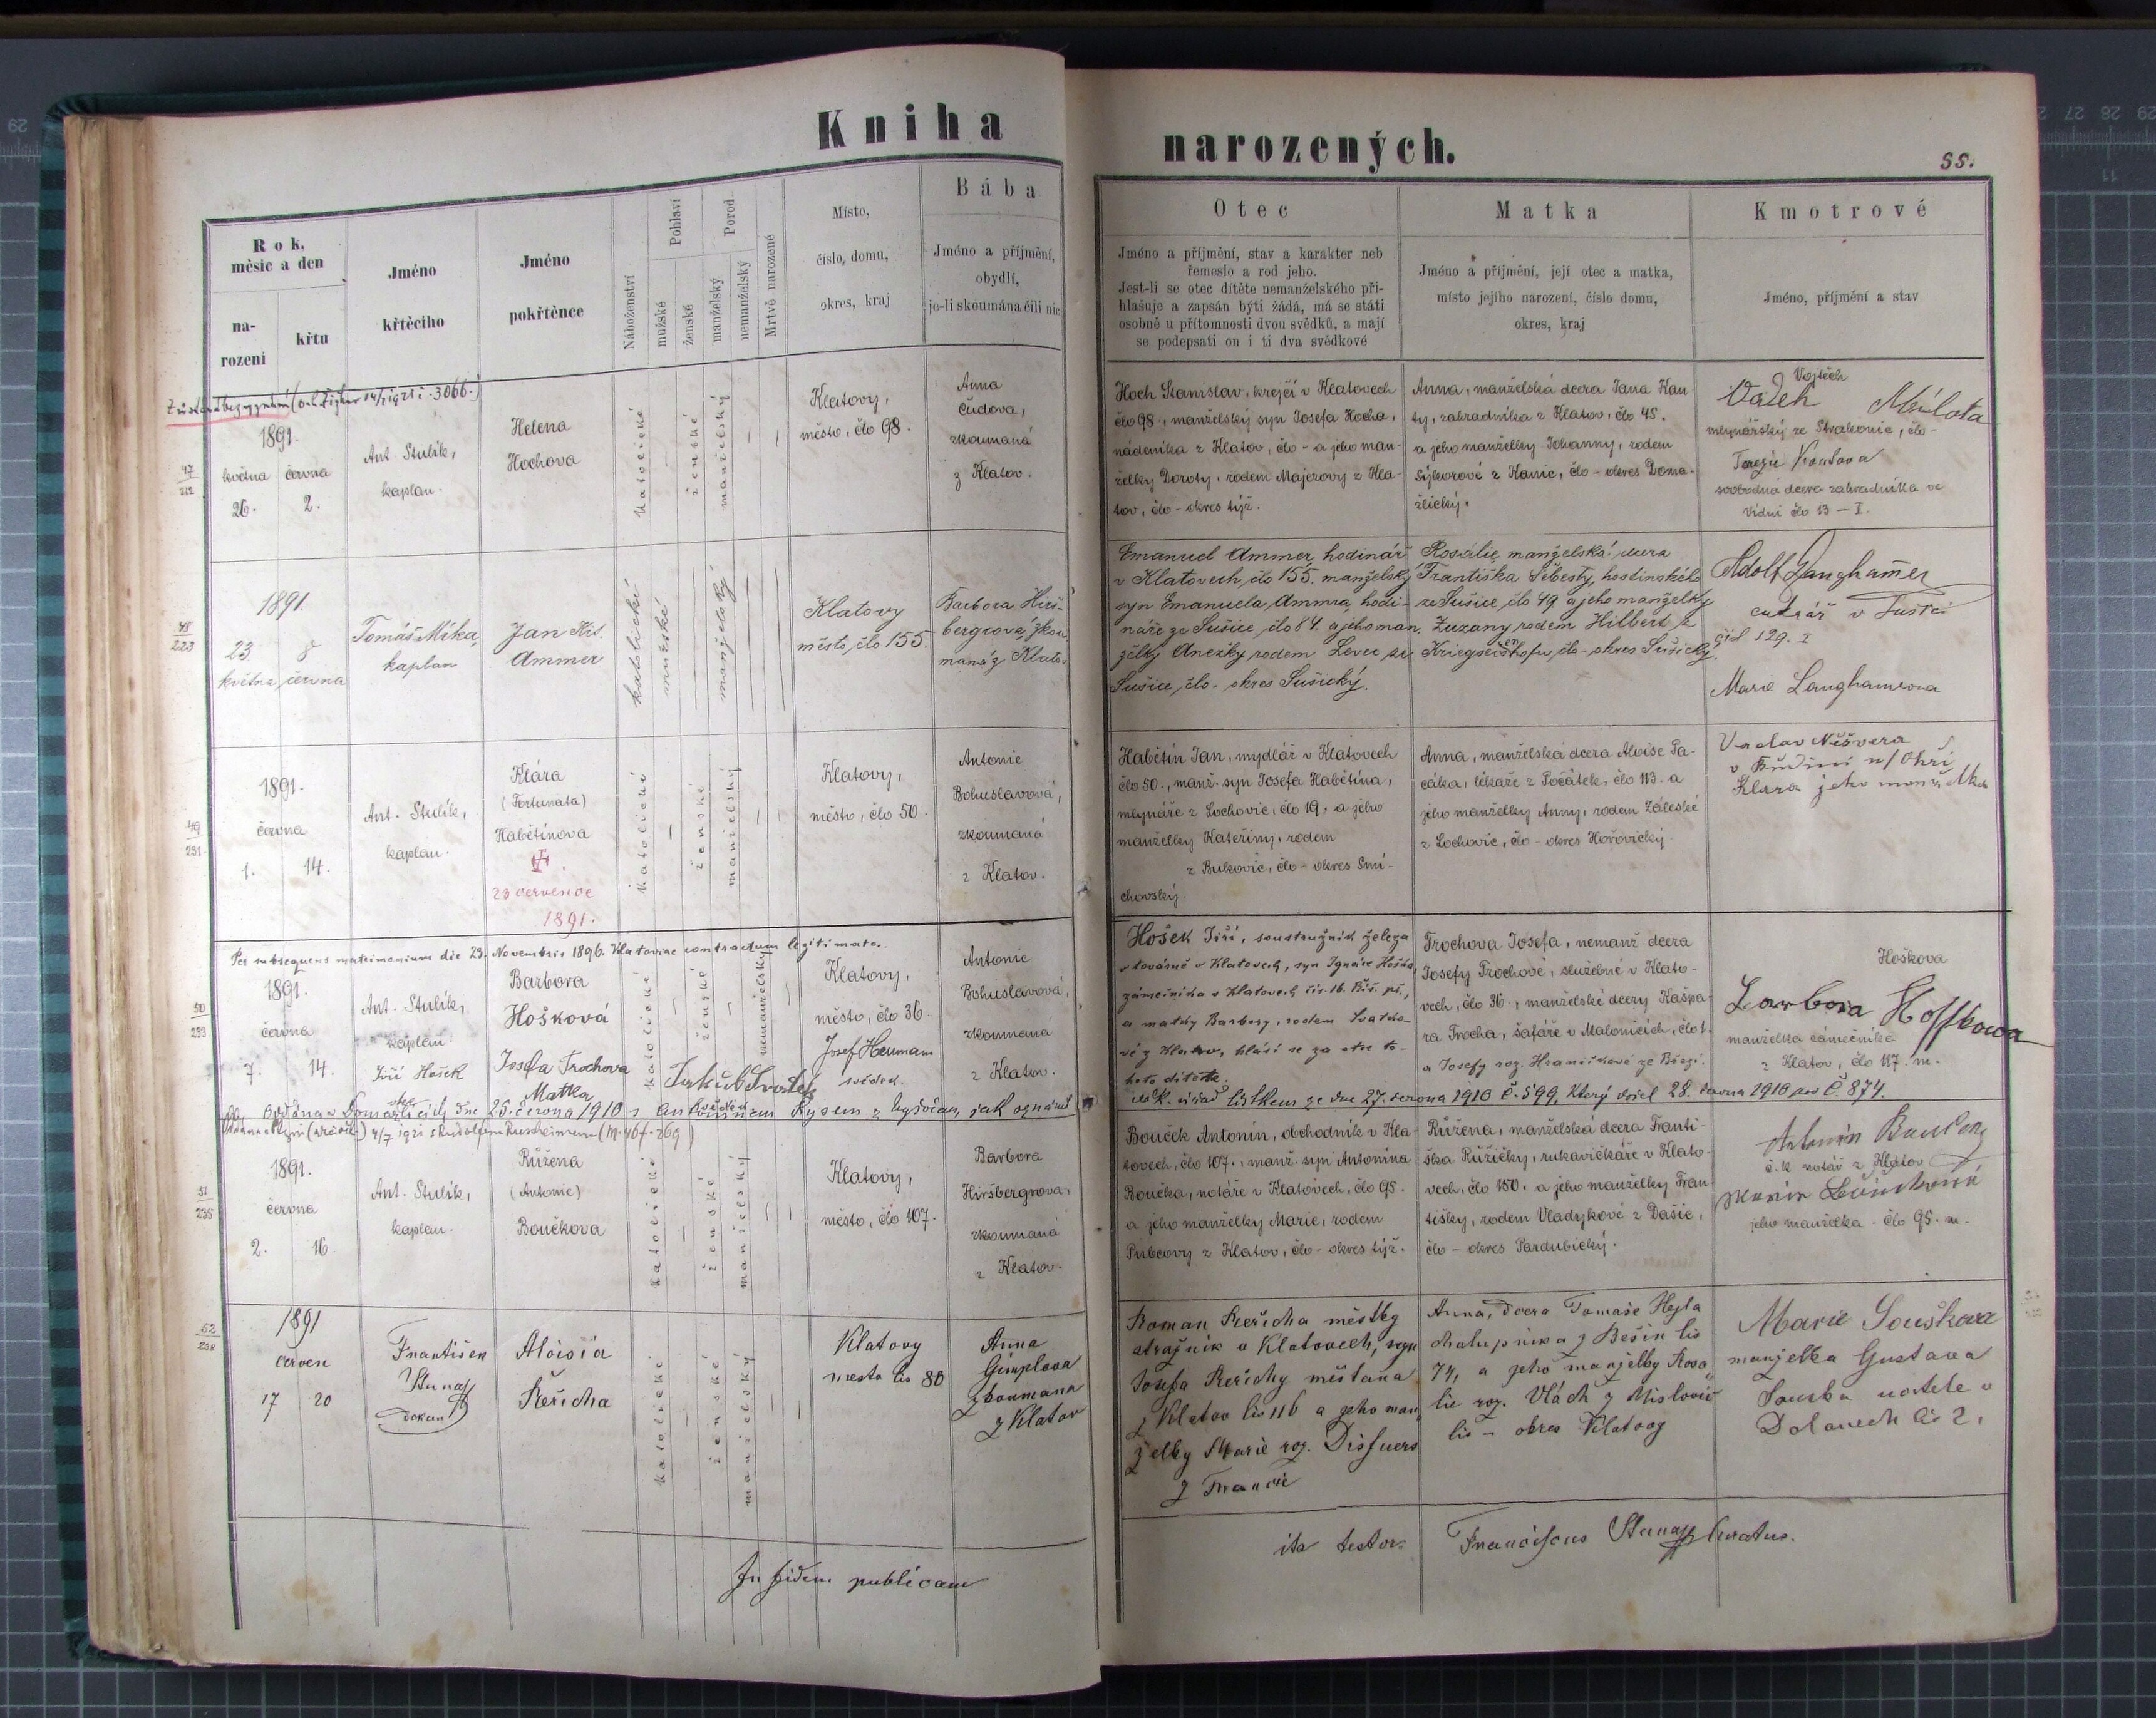 Kniha
narozených.
55.
Rok,
měsíc a den
na-
rozeni
křtu
Jméno
křtěcího
Jméno
pokřtěnce
Náboženství
Pohlaví
mužské
ženské
Porod
manželský
nemanželský
Mrtvě narozené
Místo,
číslo, domu,
okres, kraj
Bába
Jméno a příjmění,
obydlí,
je-li skoumána čili nic
Otec
Jméno a příjmění, stav a karakter neb
řemeslo a rod jeho.
Jest-li se otec dítěte nemanželského při-
hlašuje a zapsán býti žádá, má se státi
osobně u přítomnosti dvou svědků, a mají
se podepsati on i ti dva svědkové
Matka
Jméno a příjmění, její otec a matka,
místo jejího narození, číslo domu,
okres, kraj
Kmotrové
Jméno, příjmění a stav
47
212
1891.
května června
26. 2.
Ant. Stulík,
kaplan.
Helena
Hochova
katolické
ženské
manželský
Klatovy,
město, čło 98.
Anna
Čudova,
zkoumaná
z Klatov.
Hoch Stanislav, krejčí v Klatovech
čło 98., manželský syn Josefa Hocha,
nádeníka z Klatov, čło - a jeho man-
želky Doroty, rodem Majerovy z Kla-
tov, čło - okres týž.
Anna, manželská dcera Jana Kan
ty, zahradníka z Klatov, čło 45.
a jeho manželky Johanny, rodem
Sýkorové z Kanic, čło - okres Doma-
žlický.
Vojtěch
Milota
mlynářský ze Strakonic, čło -
Terezie
svobodná dcera zahradníka ve
Vídni čło 13 - I.
48
223
1891
23 8
května června
Tomáš Míka,
kaplan
Jan
Ammer
katolické
mužské
manželský
Klatovy
město, čło 155.
Barbora Hirš-
bergrová, zkou
maná z Klatov
Emanuel Ammer, hodinář
v Klatovech, čło 155. manželský
syn Emanuela Ammra, hodi-
náře ze Sušice, čło 84. a jeho man.
želky Anežky rodem Levec ze
Sušice, čło - okres Sušický.
Rosalie, manželská dcera
Františka Šebesty, hostinského
ze Sušice, čło 49 a jeho manželky
Zuzany, rodem Hilbert z
čło - okres Sušický.
Adolf Langhamer
cukrář v Sušici
čísl 129. I
Marie Langhamrova
49
231
1891.
června
1. 14.
Ant. Stulík,
kaplan.
Klára
(Fortunata)
Habětínova
23 července
1891.
katolické
ženské
manželský
Klatovy,
město, čło 50.
Antonie
Bohuslavová,
zkoumaná
z Klatov.
Habětín Jan, mydlář v Klatovech
čło 50., manž. syn Josefa Habětína,
mlynáře z Lochovic, čło 19. a jeho
manželky Kateřiny, rodem
z Bukovic, čło - okres Smí-
chovský.
Anna, manželská dcera Aloise Pa-
cáka, lékaře z Počátek, čło 113. a
jeho manželky Anny, rodem Záleské
z Lochovic, čło - okres Hořovický.
Vaclav Nešvera
v Budíni n/Ohří
Klara jeho manželka
Per subsequens matrimonium die 23. Novembris 1896. Klatoviae contractum legitimata.
50
233
1891.
června
7. 14.
Ant. Stulík,
kaplan.
Jiří Hošek
otec
Barbora
Hošková
Josefa Trochova
Matka
katolické
ženské
nemanželský
Klatovy,
město, čło 36.
Josef Heumann
svědek.
Antonie
Bohuslavová,
zkoumaná
z Klatov.
Hošek Jiří, soustružník železa
v továrně v Klatovech, syn Ignáce Hoška,
zámečníka v Klatovech čís. 16. Říš. př.,
a matky Barbory, rodem Svatko-
vé z Klatov, hlásí se za otce to-
hoto dítěte.
Trochova Josefa, nemanž. dcera
Josefy Trochové, služebné v Klato-
vech, čło 36., manželské dcery Kašpa-
ra Trocha, šafáře v Malonicích, čło 1.
a Josefy roz. Hraničkové ze Březí.
Hoškova
Barbora Hoffkowa
manželka zámečníka
z Klatov, čło 117. m.
Oddána v Domažlicích dne 25. června 1910 s Antonínem Rysem z, jak oznámil
c.k. úřad lístkem ze dne 27. června 1910 č. 599, který došel 28. června 1910 pod č. 874.
51
235
1891.
června
2. 16.
Ant. Stulík,
kaplan.
Růžena
(Antonie)
Boučkova
katolické
ženské
manželský
Klatovy,
město, čło 107.
Barbora
Hiršbergrova,
zkoumaná
z Klatov.
Bouček Antonín, obchodník v Kla-
tovech, čło 107., manž. syn Antonína
Boučka, notáře v Klatovech, čło 95.
a jeho manželky Marie, rodem
Pubcovy z Klatov, čło - okres týž.
Růžena, manželská dcera Franti-
ška Růžičky, rukavičkáře v Klato-
vech, čło 150. a jeho manželky Fran
tišky, rodem Vladykové z Dašic,
čło - okres Pardubický.
Antonín Bouček
c.k. notář z Klatov
Marie Boučková
jeho manželka. čło 95. m.
52
238
1891
červen
17 20
František
děkan
Aloisia
Řeřicha
katolické
ženské
manželský
Klatovy
mesto čis 80
Anna
Gimplova
zkoumana
z Klatov
Roman Řeřicha městky
stražnik v Klatovech, syn
Josefa Řeřichy měštana
z Klatov čis 116 a jeho man
želky Marie roz.
z Francie
Anna, dcera Tomaše Hejla
chalupnika z Bešin čis
74, a jeho manželky Rosa
lie roz. Vlách z Mislovic
čis - okres Klatovy
Marie Souškova
manželka Gustava
Souska učitele v
Dolanech čis 2.
In fidem publicam
ita testor Franciscus Curatus.